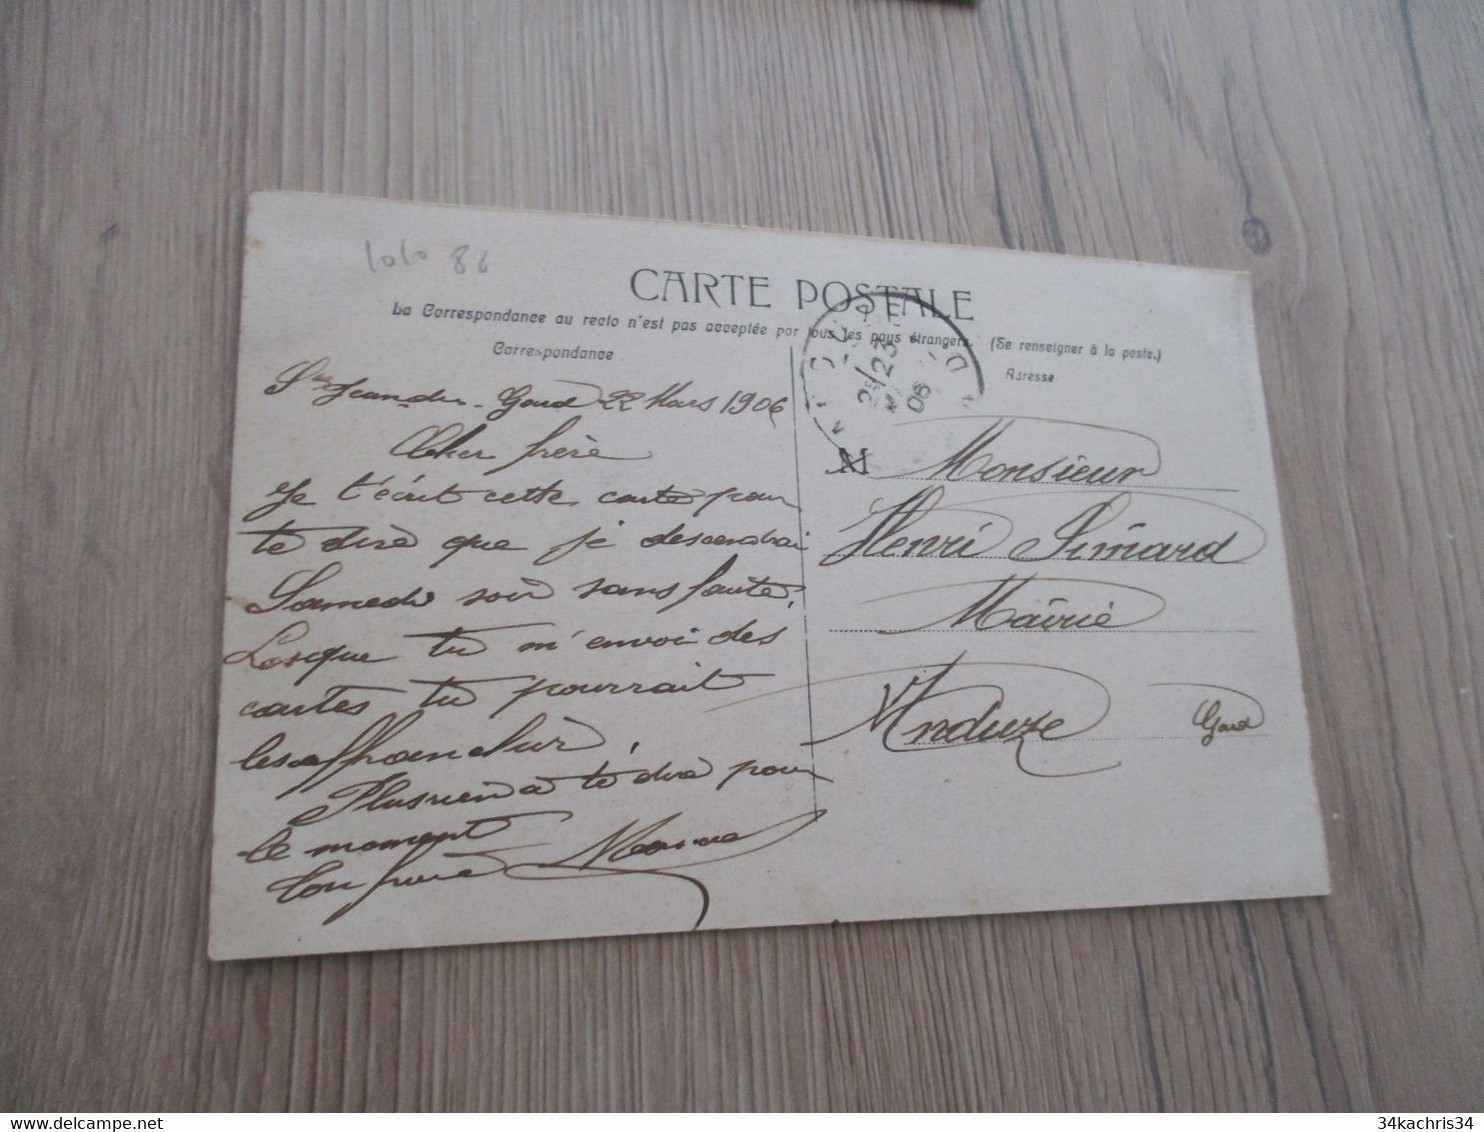 lolo 82
CARTE POSTALE
La Correspondance au recto n'est pas acceptée par tous les pays étrangers. (Se renseigner à la poste.)
Correspondance
Adresse
St Jean du Gard 22 Mars 1906
Cher frère
Je t'écrit cette carte pour
te dire que je descendrai
Samedi soir sans faute.
Losque tu m'envoi des
cartes tu pourrait
les affranchir.
Plus rien à te dire pour
le moment
Ton frère
23
06
M
Monsieur
Henri Simard
Mairie
Anduze Gard
34kachris34